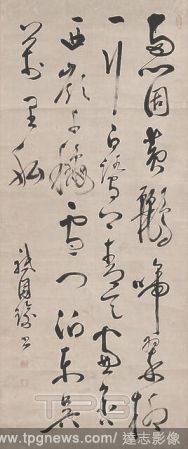 兩個黃鸝啼翠柳
一行白鷺上青天窗含
西嶺千秋雪門泊東吳
萬里船
TPG
www.tpgnews.com | 達志影像